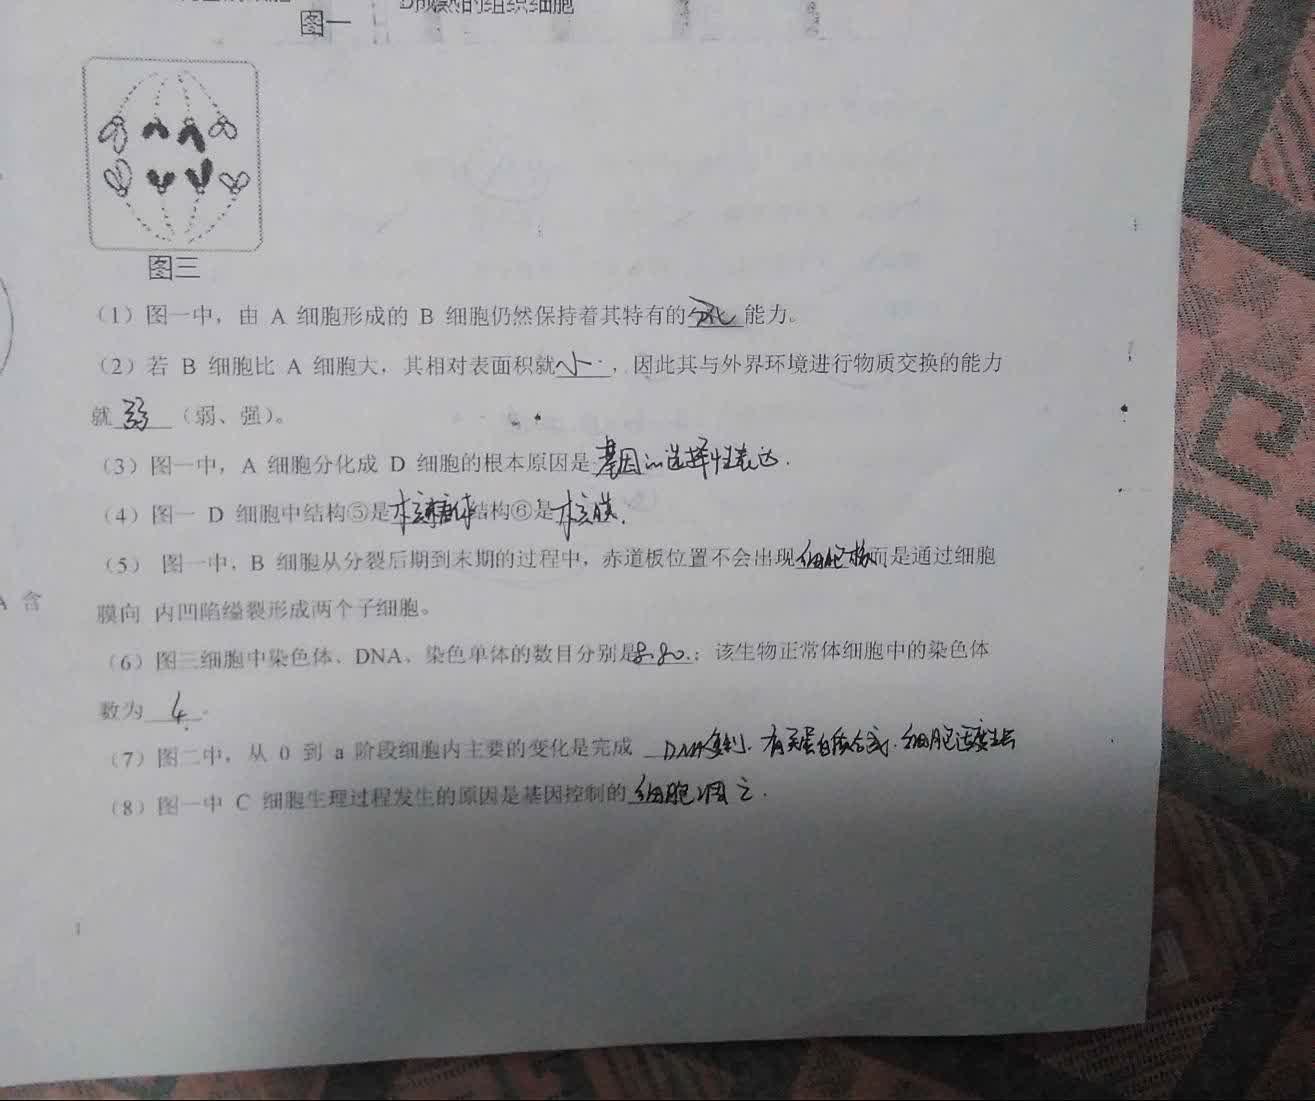 D成熟的组织细胞
图一
图三
(1) 图一中，由 A 细胞形成的 B 细胞仍然保持着其特有的分化能力。
(2) 若 B 细胞比 A 细胞大，其相对表面积就小，因此其与外界环境进行物质交换的能力
就弱（弱、强）。
(3) 图一中，A 细胞分化成 D 细胞的根本原因是基因的选择性表达.
(4) 图一 D 细胞中结构⑤是核糖体结构⑥是核膜.
(5) 图一中，B 细胞从分裂后期到末期的过程中，赤道板位置不会出现细胞板而是通过细胞
A 含
膜向 内凹陷缢裂形成两个子细胞。
(6) 图三细胞中染色体、DNA、染色单体的数目分别是8.8.0.；该生物正常体细胞中的染色体
数为 4.
(7) 图二中，从 0 到 a 阶段细胞内主要的变化是完成 DNA复制.有关蛋白质合成.细胞适度生长
(8) 图一中 C 细胞生理过程发生的原因是基因控制的细胞凋亡.
1